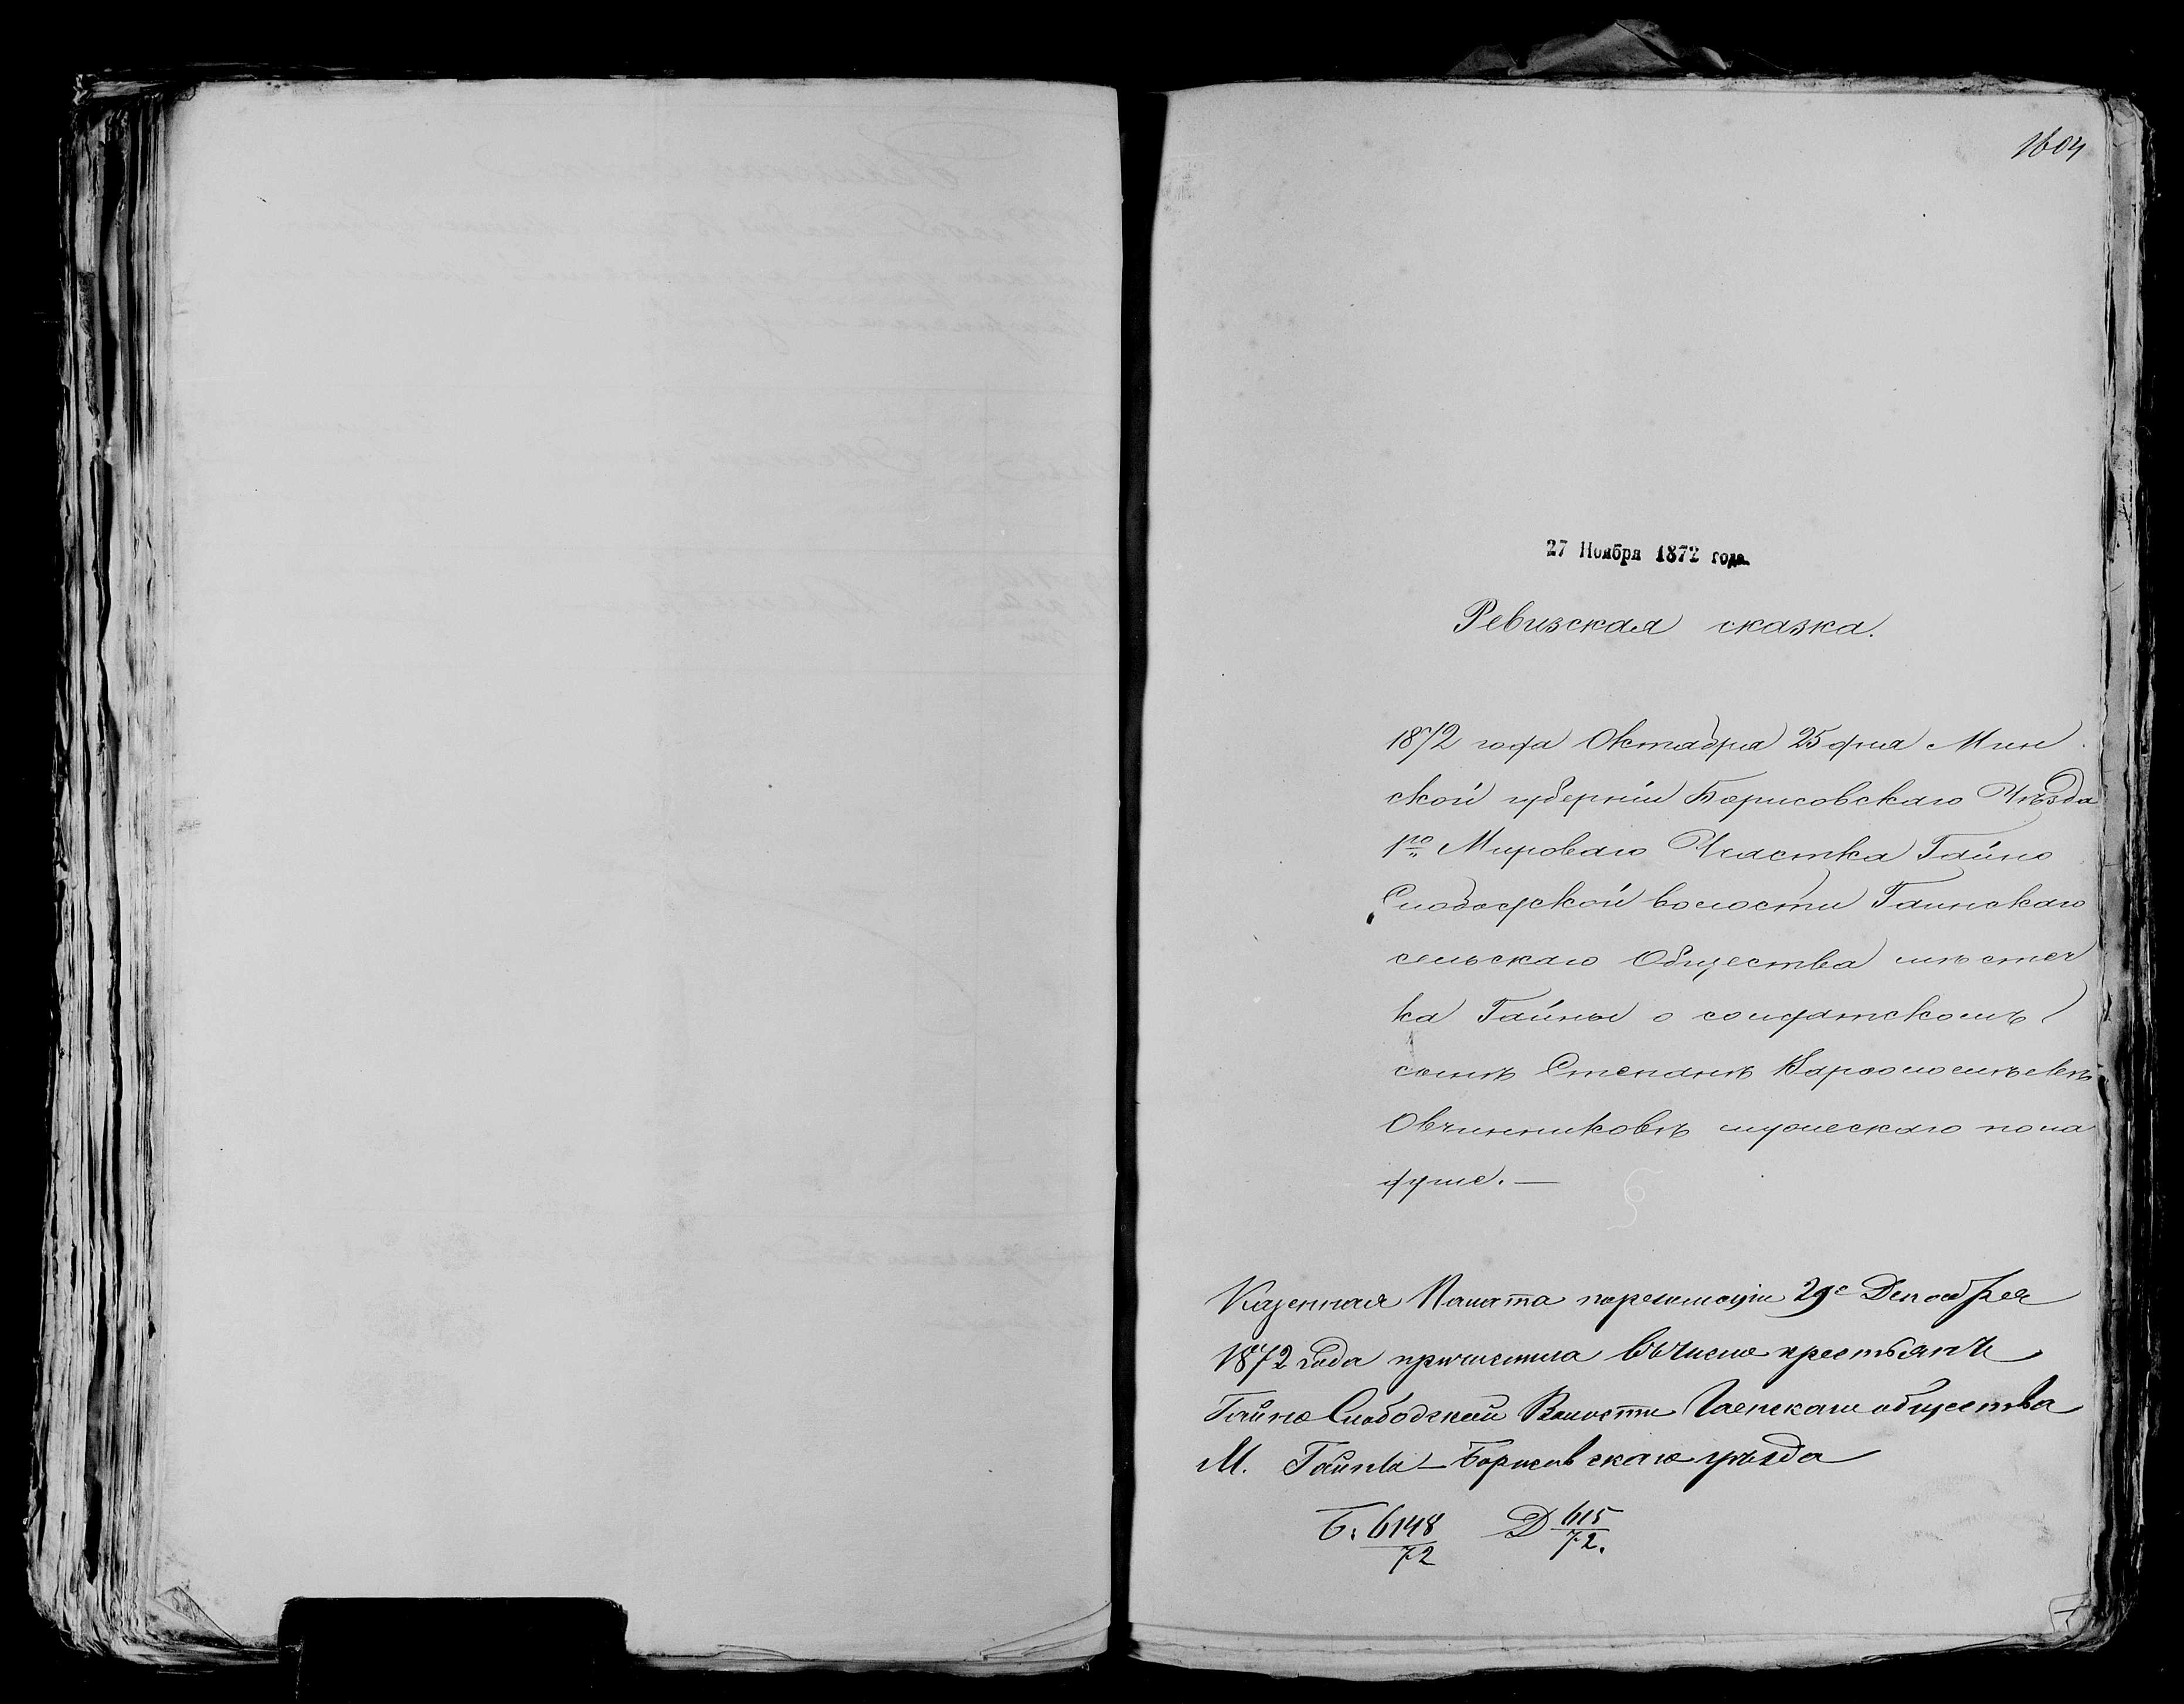 1604
27 Ноября 1872 года.
Ревизская сказка.
1872 года Октября 25 дня Мин
ской губерніи Борисовскаго Уѣзда
1го Мироваго Участка Гайно
Слободской волости Гаинскаго
сельскаго Общества мѣстеч
ка Гайны о солдатскомъ
сынѣ Степанѣ Варѳоломѣевѣ
Овчинниковѣ мужескаго пола
душе. —
Казенная Палата 29 Декабря
1872 года причислила въ число крестьянъ
Гайно Слободской Волости общества
М. Гайны — Борисовскаго уѣзда
Б. 6148/72 Д 615/72.